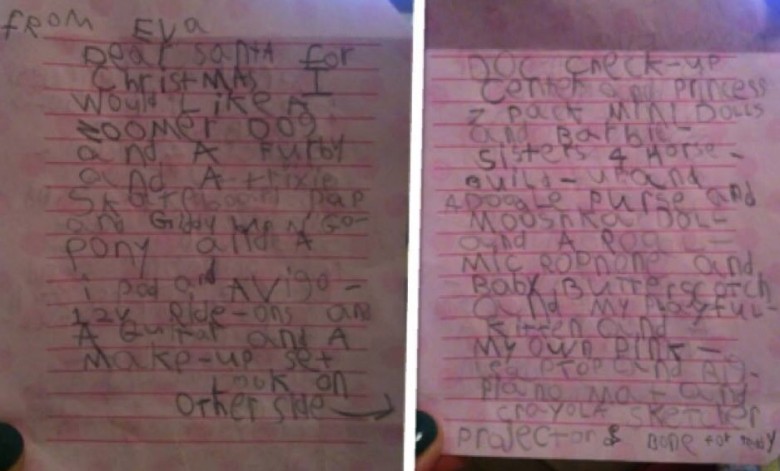 FROM Eva
Dear santa for
ChristMas I
Would Like A
ZOOMER DOG
and A Furby
and A trixie
Skateboard
and Giddy Up n Go
pony and A
i pod and A Vigo-
12v Ride-ons and
A Guitar and A
Make-up set
Look on
other side
DOC check-up
Center and princess
2 pack Mini Dolls
and Barbie-
Sisters 4 Horse-
Build-up and
A Doggie purse and
Mooshka Doll-
and A
and
Baby Butterscotch
and My Playful-
Kitten and
My Own Pink-
Leaptop and A
piano Mat and
crayola sketcher
projector & Bone for